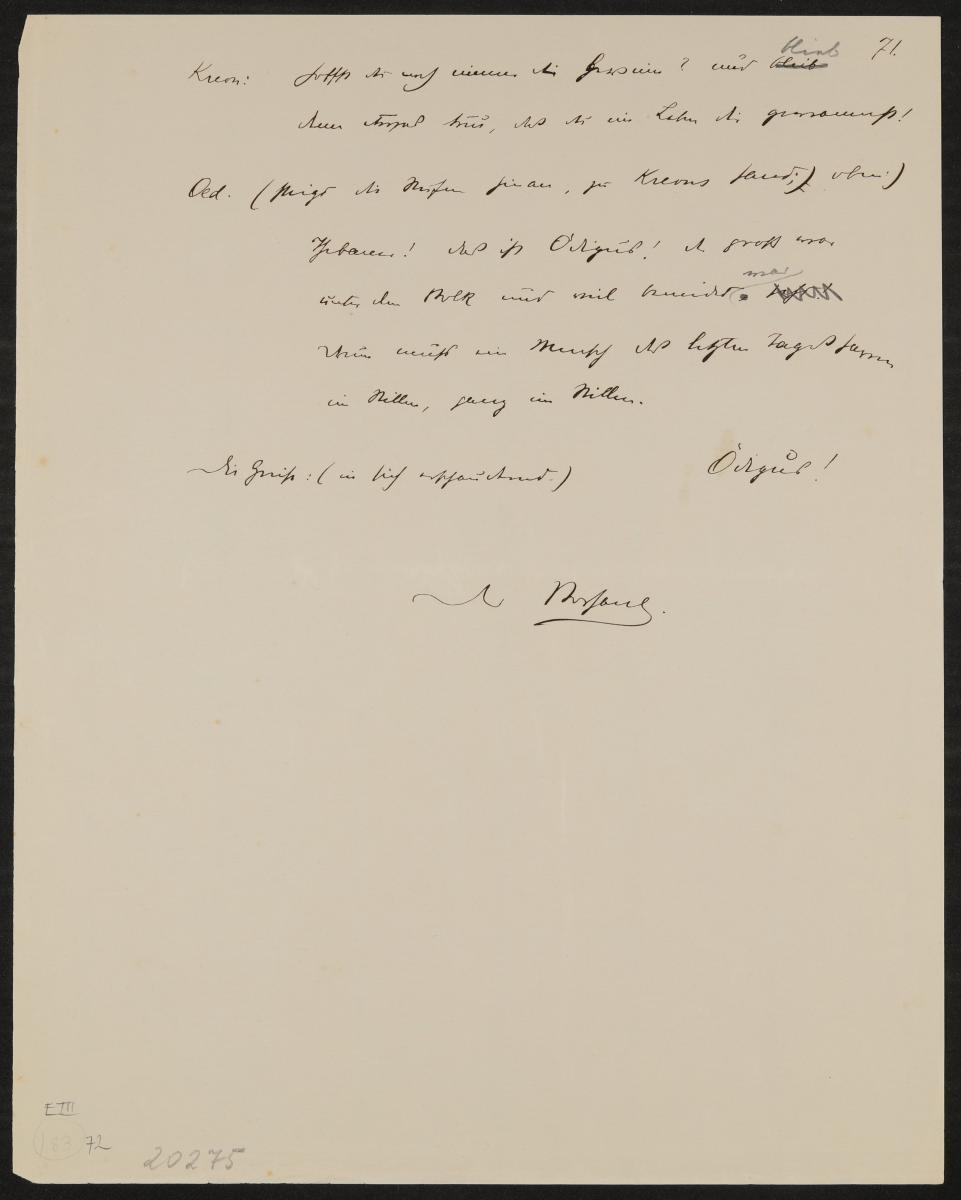 71.
Kreon: Hoffst du noch immer die Gewinn? und bleib blieb
dem Apoll treu, daß du ein Leben dir
Oed. (steigt die Stufen hinan, zu Kreons Haus;) oben:)
Thebaner! das ist Ödipus! der gross war
unter dem Volk und viel beneidet. war
Nun muß ein Mensch des letzten Tages harren
im Stillen, ganz im Stillen.
Die Greise: (in sich erschauernd.) Ödipus!
der Vorhang.
E III
183 72
20275